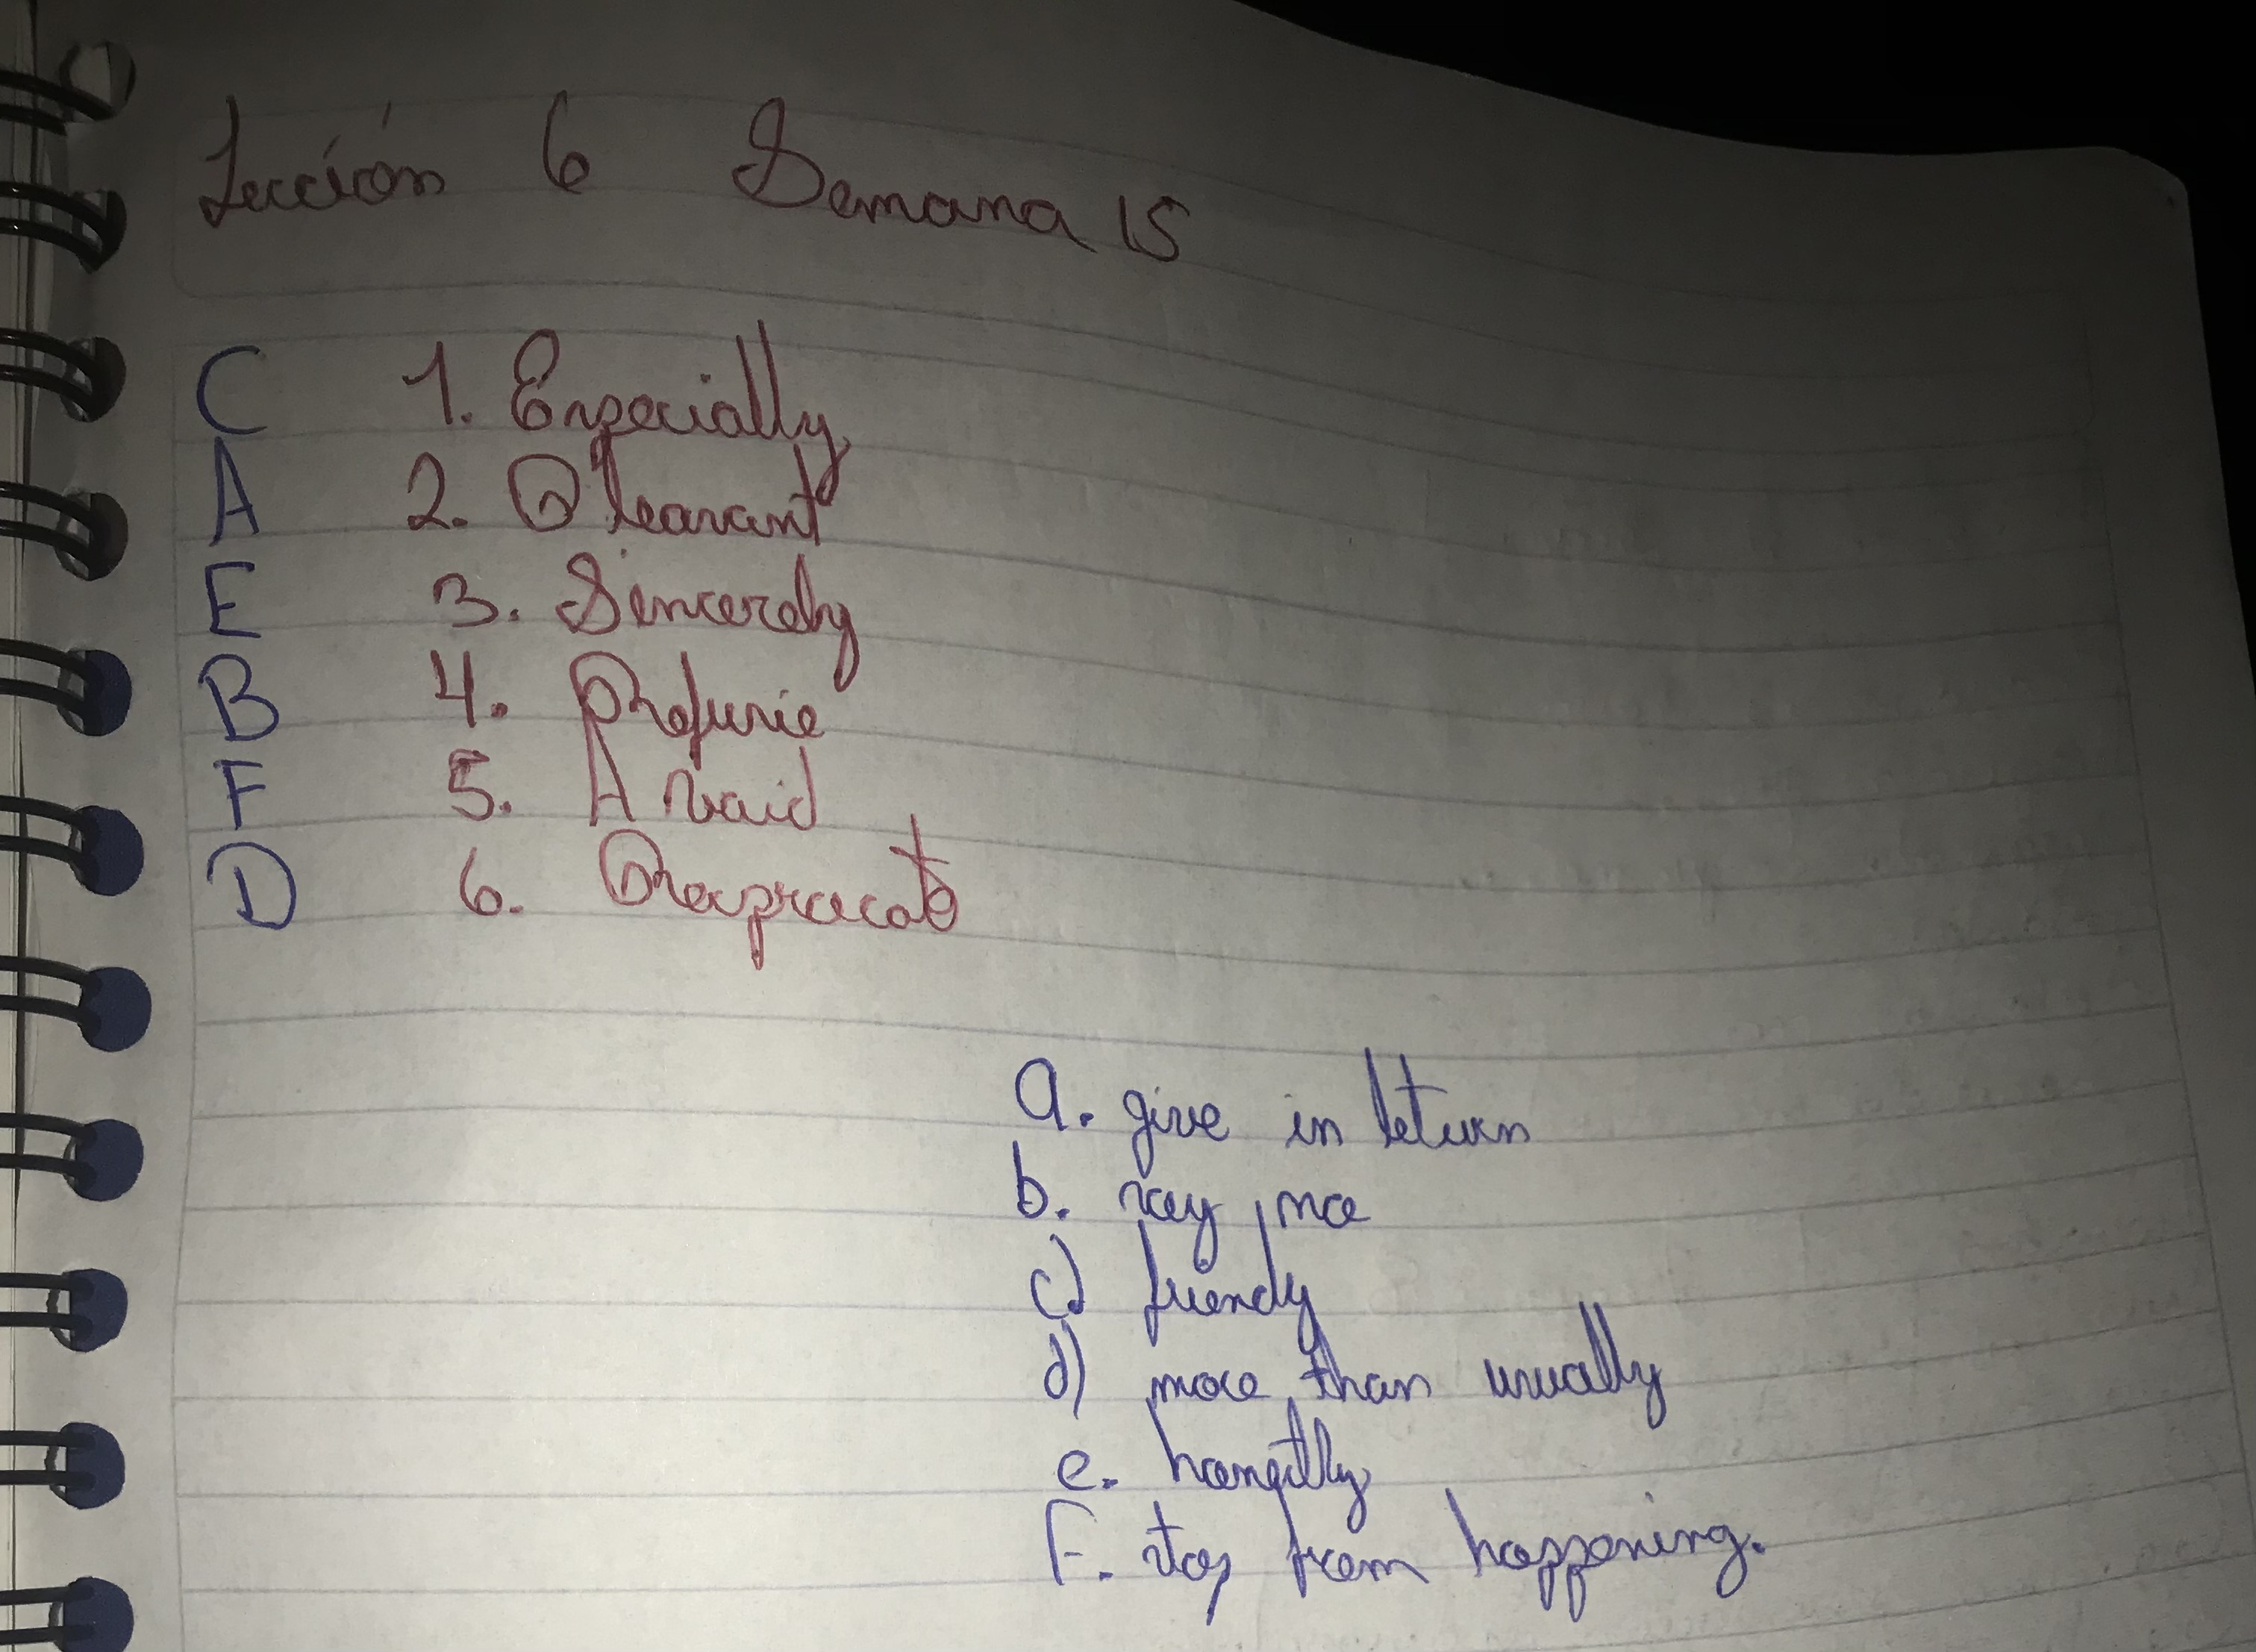 Lección 6 Semana 15
C 1. Especially
A 2. Pleasant
E 3. Sincerely
B 4. Refusie
F 5. Avoid
D 6. Reciprocate
a. give in return
b. say no
c) friendly
d) more than usually
e. honestly
F. stop from happening.